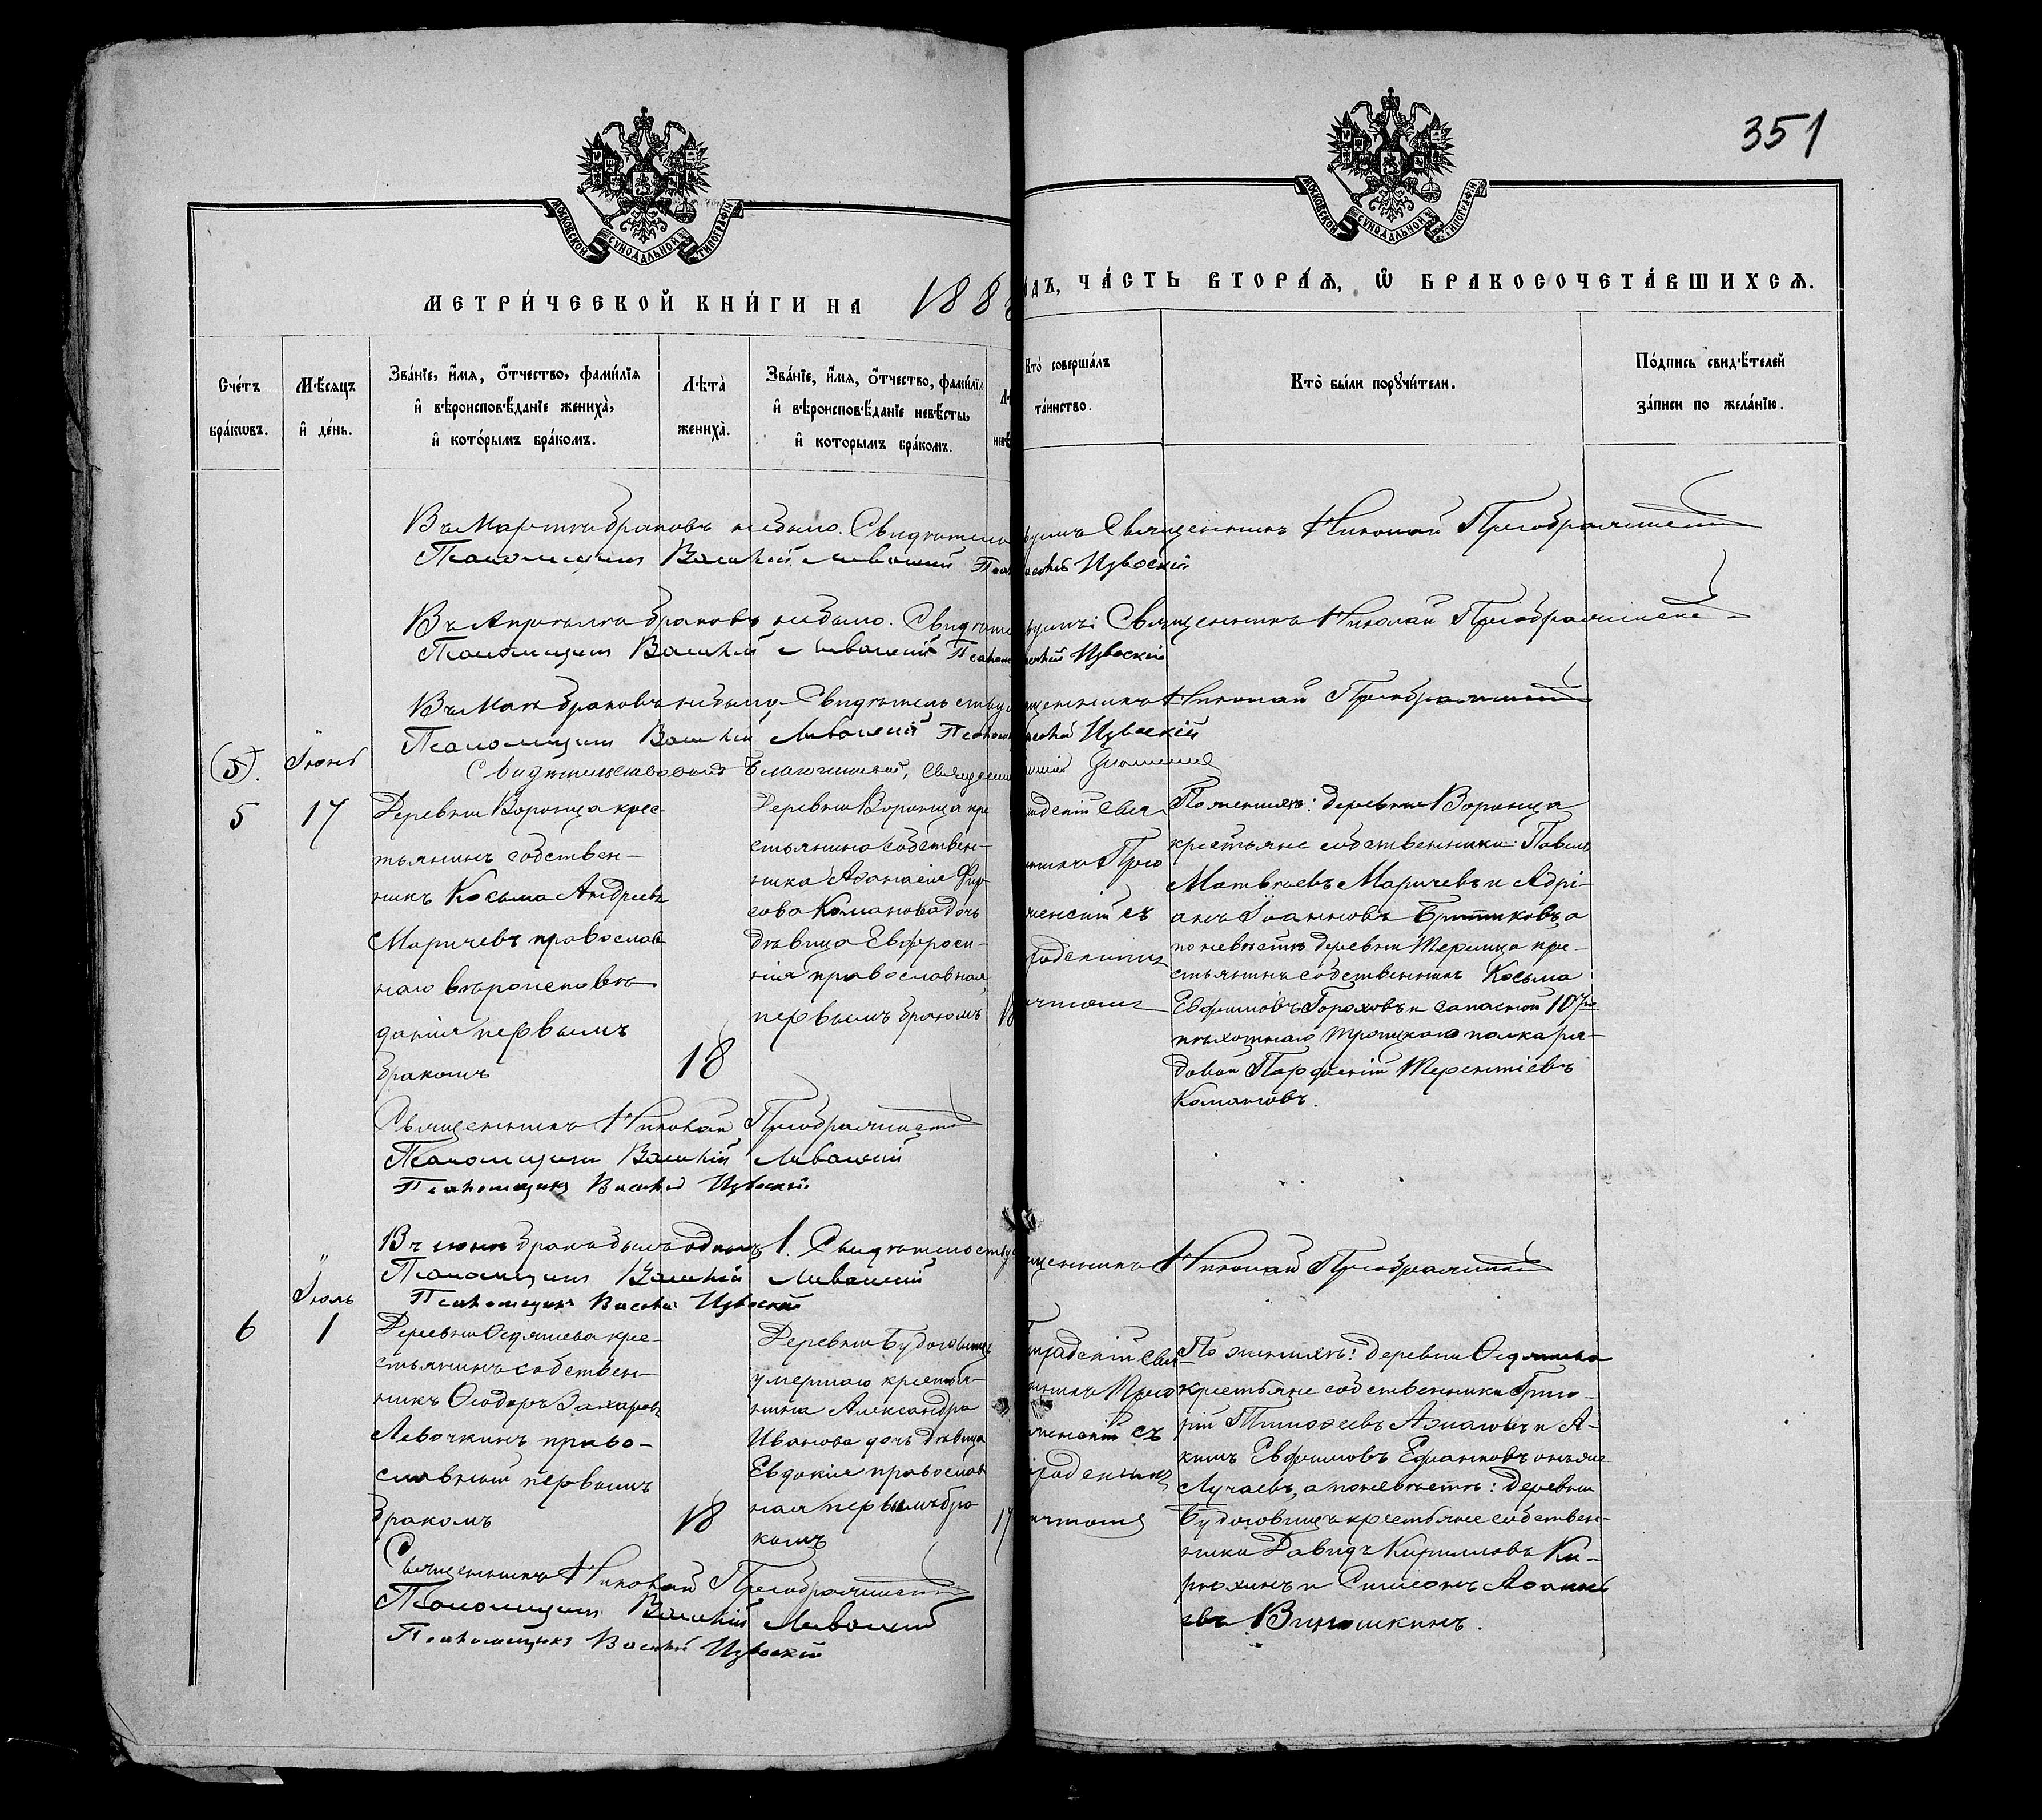 351
МОСКОВСКОЙ СУНОДАЛЬНОЙ ТИПОГРАФІИ
МОСКОВСКОЙ СУНОДАЛЬНОЙ ТИПОГРАФІИ
МЕТРИ́ЧЕСКОЙ КНИ́ГИ НА 188
ОДЪ, ЧА́СТЬ ВТОРА́Ѧ, Ѿ БРАКОСОЧЕТА́ВШИХСѦ.
Сче́тъ бра́кѡвъ.
Мѣ́сѧцъ и҆ де́нь.
Зва́нїе, и҆́мѧ, ѻ҆́тчество, фами́лїѧ
и҆ вѣроисповѣ́данїе жениха̀,
и҆ кото́рымъ бра́комъ.
Лѣта̀ жениха̀.
Зва́нїе, и҆́мѧ, ѻ҆́тчество, фами́лїѧ
и҆ вѣроисповѣ́данїе невѣ́сты,
и҆ которымъ бра́комъ.
Кто̀ соверша́лъ
та́инство.
Кто̀ бы́ли порꙋчи́тели.
По́дпись свидѣ́телей
за́писи по жела́нїю.
Въ Мартѣ браковъ небыло. Свидѣтель
Священникъ Николай Преображенскій
Псаломщикъ Василій Ливанскій
Извоскій
Въ Апрѣлѣ браковъ небыло.
Священникъ Николай Преображенскій
Псаломщикъ Василій Ливанскій
Извоскій
Въ Маѣ браковъ небыло. Свидѣтельству
Николай Преображенскій
Псаломщикъ Василій Ливанскій
Извоскій
(5). Іюнь
Свидѣтельствовалъ Благочинный, Священ
5 17
Деревни Воронца крес-
тьянинъ собствен-
никъ Косьма Андреевъ
Маричевъ православ
наго вѣроисповѣ-
данія первымъ
бракомъ
18
Деревни Воронца кре
стьянина собствен-
ника Аѳанасія Фир-
сова Команова дочь
дѣвица Евфроси-
нія православная,
первымъ бракомъ
По женихѣ: деревни Воронца
крестьяне собственники: Павелъ
Матвѣевъ Маричевъ и Адрі-
анъ Іоанновъ Бритиковъ, а
по невѣстѣ деревни Терлица кре-
стьянинъ собственникъ Косьма
Евфимовъ Гороховъ и запасной 107го
пѣхотнаго Троицкаго полка ря-
довой Парфеній Терентіевъ
Комановъ.
Священникъ Николай Преображенскій
Псаломщикъ Василій Ливанскій
Псаломщикъ Василій Извоскій
Въ іюнѣ бракъ былъ одинъ 1. Свидѣтельству
Николай Преображенскій
Псаломщикъ Василій Ливанскій
Псаломщикъ Василій Извоскій
Іюль
6 1
Деревни Осдяшева кре-
стьянинъ собствен-
никъ Ѳеодоръ Захаровъ
Левочкинъ право-
славный первымъ
бракомъ
18
Деревни Будоговищъ
умершаго крестья-
нина Александра
Иванова дочь дѣвица
Евдокія православ
ная первымъ бра
комъ
17
По женихѣ: деревни Осдяшева
крестьяне собственники Григо-
рій Тимоѳеевъ и А-
кимъ Евфимовъ
Лучаевъ, а по невѣстѣ: деревни
Будоговищъ крестьяне собствен-
ники Давидъ Кириловъ Ки-
рюхинъ и Симеонъ Аѳанась
евъ Винюшкинъ.
Священникъ Николай Преображенскій
Псаломщикъ Василій Ливанскій
Псаломщикъ Василій Извоскій